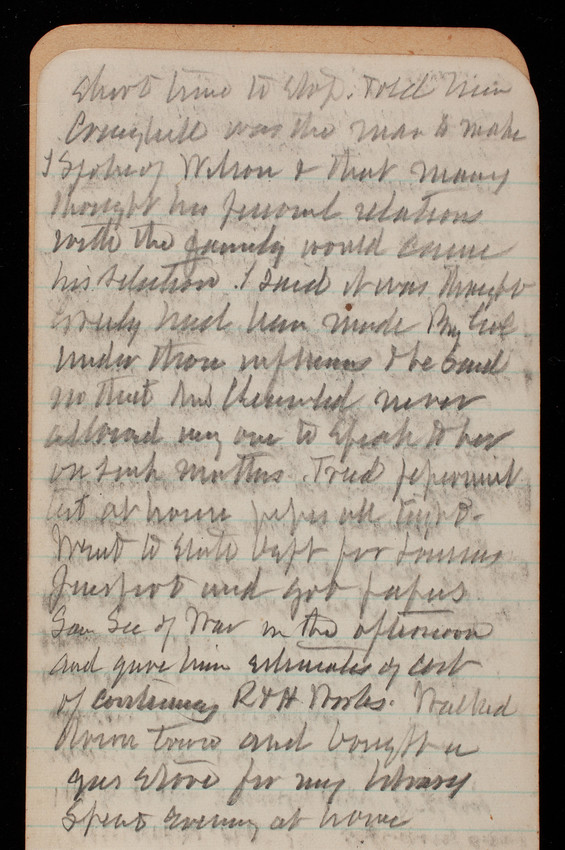 short time to stop. Told him
Craighill was the man to make
I spoke of Wilson & that many
thought his personal relations
with the family would cause
his selection. I said it was thought
had been made Brig Genl
under those influences & he said
no that Mrs Cleveland never
allowed any one to speak to her
on such matters. Tried peperment
test at house pipes all tight.
Went to State Dept for
and got papers
Saw Sec of War in the afternoon
and gave him estimates of cost
of continuing R & H Works. Walked
down town and bought a
gas stove for my library
Spent evening at home